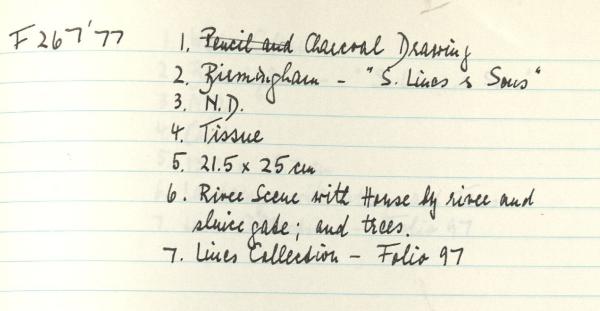 F 267'77 1. Pencil and Charcoal Drawing
2. Birmingham - "S. Lines & Sons"
3. N.D.
4. Tissue
5. 21.5 x 25 cm
6. River Scene with House by river and
sluice gate; and trees.
7. Lines Collection - Folio 97